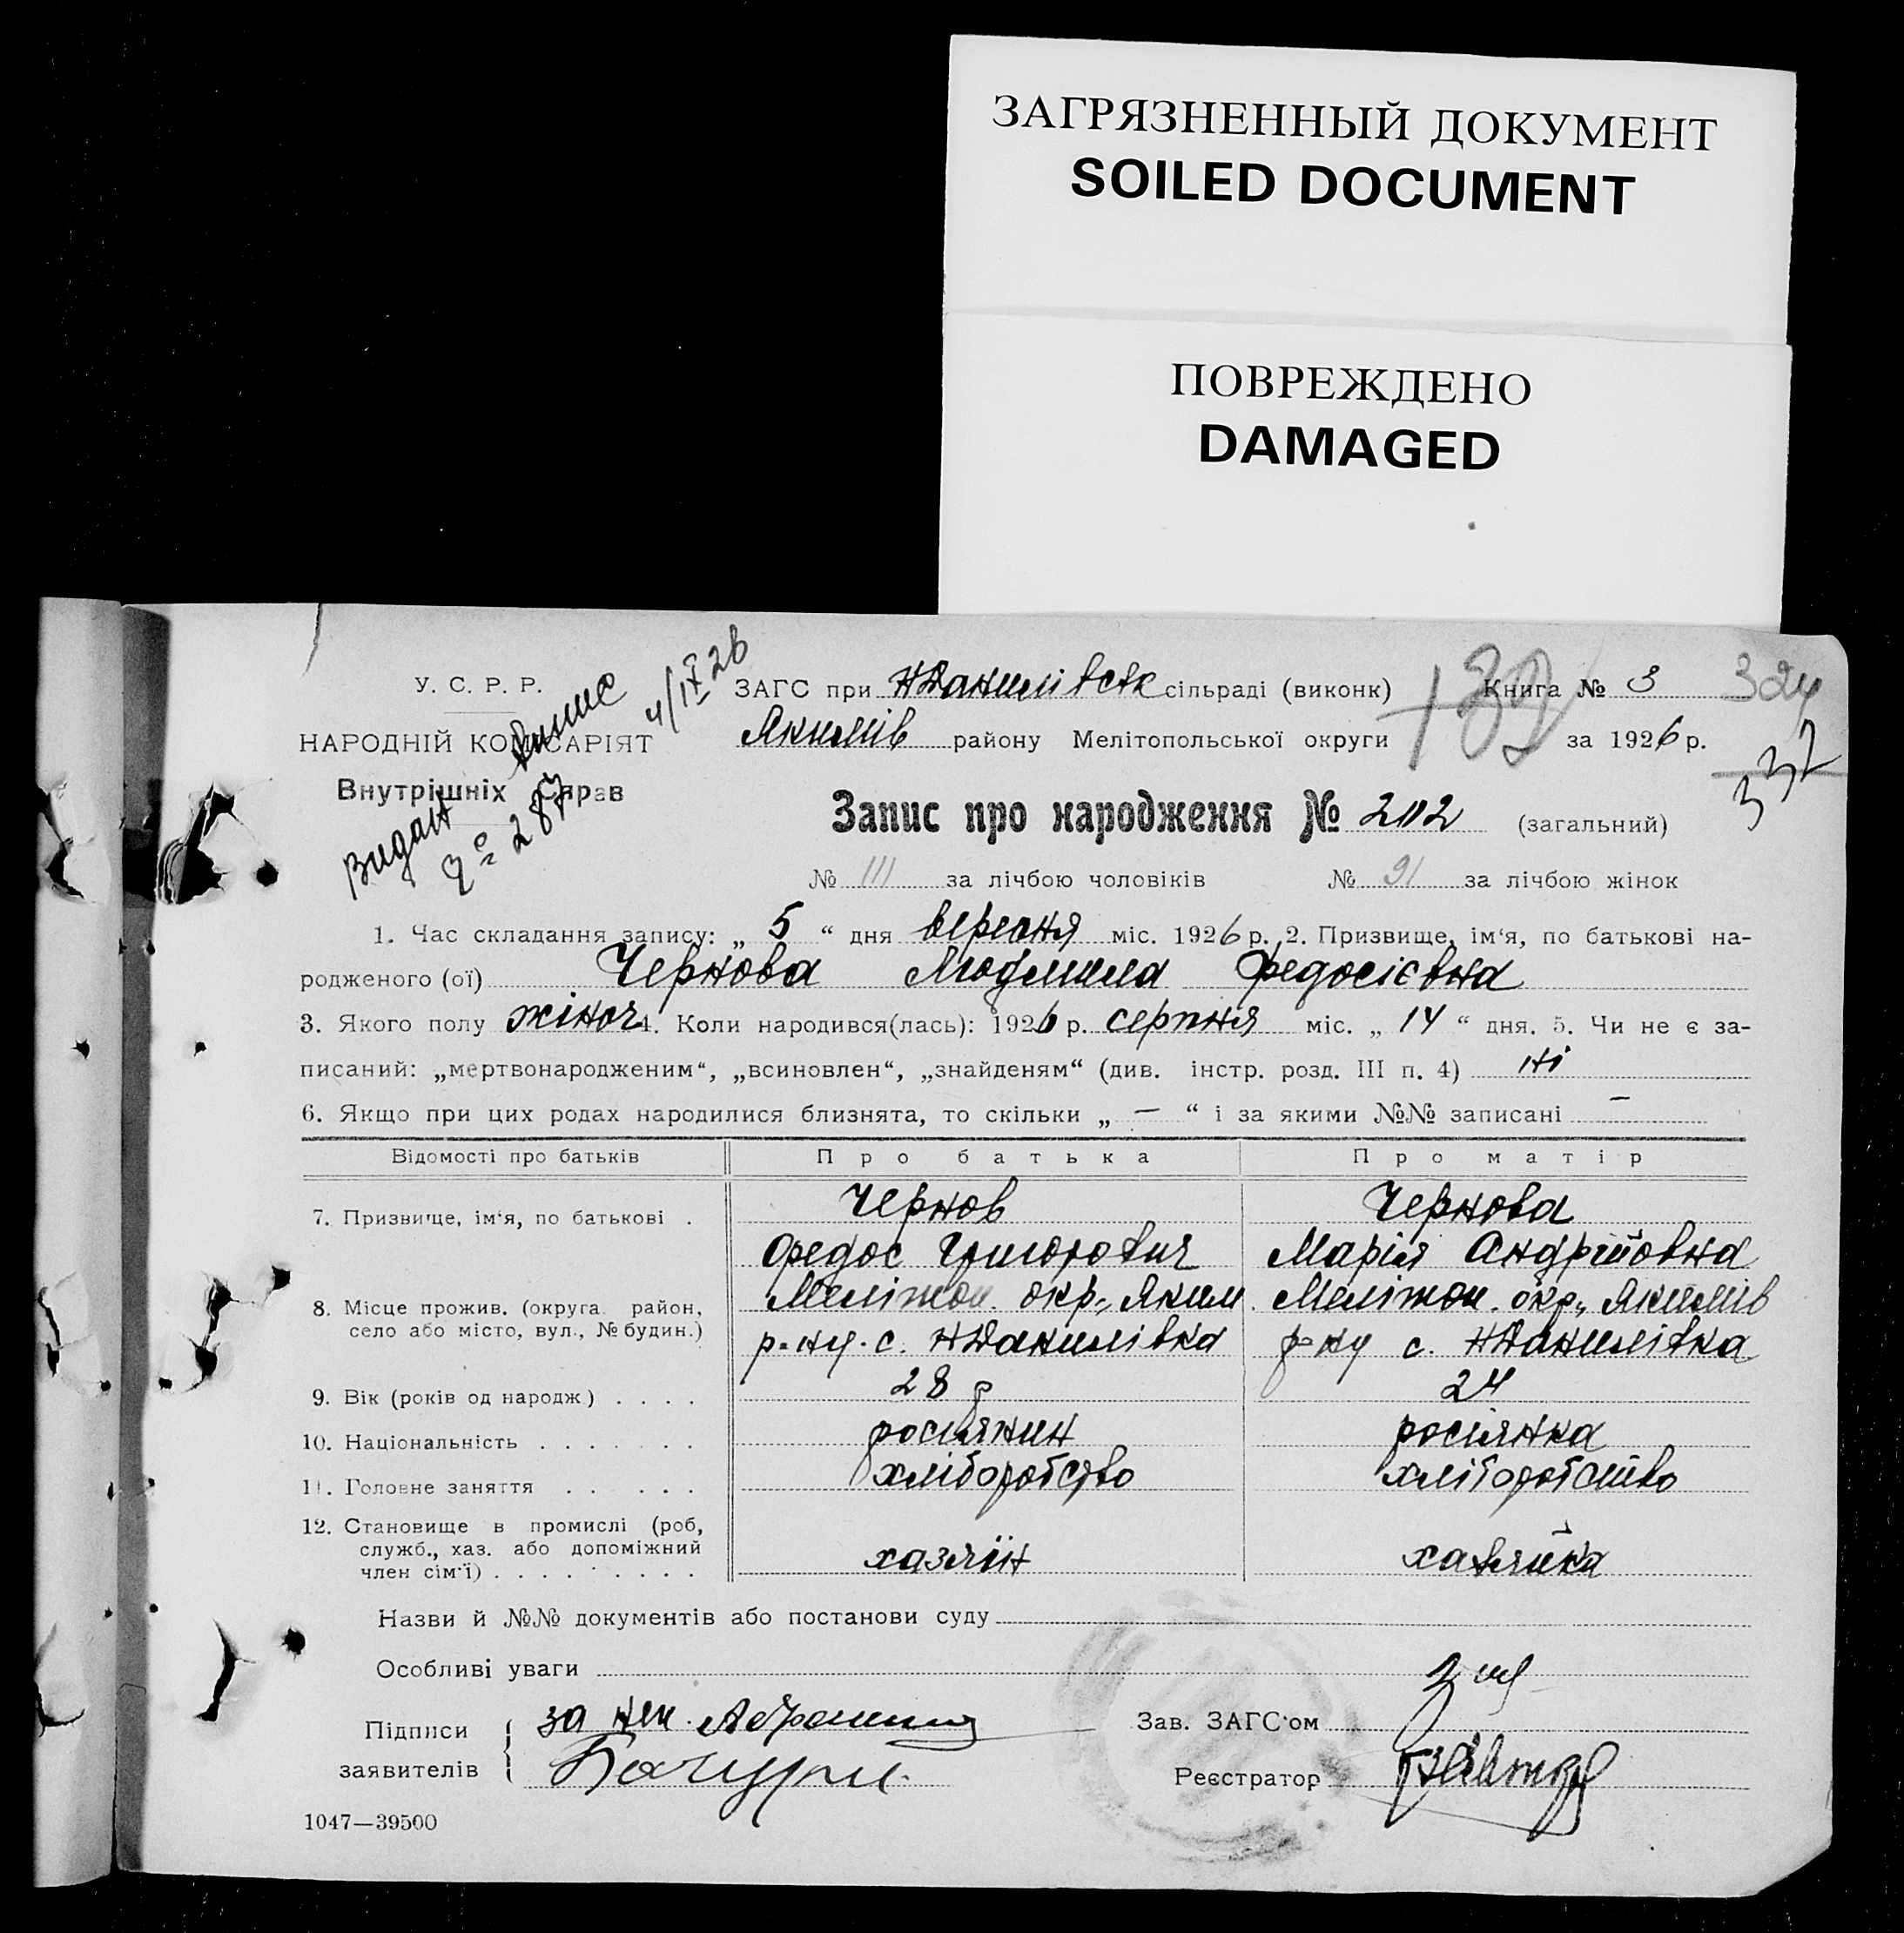 ЗАГРЯЗНЕННЫЙ ДОКУМЕНТ
SOILED DOCUMENT
ПОВРЕЖДЕНО
DAMAGED
У. С. Р. Р.
НАРОДНІЙ КОМІСАРІЯТ
Внутрішніх Справ
Видан
4/IX 26
№ 287
ЗАГС при НДанилівськ сільраді (виконк) Книга № 3
Якимів району Мелітопольської округи за 1926 р.
132
324
337
Запис про народження № 202 (загальний)
№ 111 за лічбою чоловіків № 91 за лічбою жінок
1. Час складання запису: „ 5 “ дня вересня міс. 1926 р. 2. Призвище, ім‘я, по батькові на-
родженого (ої) Чернова Людмила Федосієвна
3. Якого полу жіноч 4. Коли народився(лась): 1926 р. серпня міс. „ 14 “ дня. 5. Чи не є за-
писаний: „мертвонародженим“, „всиновлен“, „знайденям“ (див. інстр. розд. III п. 4) ні
6. Якщо при цих родах народилися близнята, то скільки „ — “ і за якими №№ записані —
Відомості про батьків Про батька Про матір
7. Призвище, ім‘я, по батькові . Чернов Чернова
Федос Григорович Марія Андрійовна
8. Місце прожив. (округа район, Мелітоп. окр., Яким. Мелітоп. окр., Якимів
село або місто, вул., № будин.) р-ну. с. НДанилівка р-ну с. НДанилівка
9. Вік (років од народж) . . . . 28 р 24
10. Національність . . . . . . . росіянин росіянка
11. Головне заняття . . . . . . хліборобство хліборобство
12. Становище в промислі (роб,
служб., хаз. або допоміжний хазяїн хазяйка
член сім‘ї) . . . . . . . . .
Назви й №№ документів або постанови суду
Особливі уваги
Підписи за неп.
заявителів
Зав. ЗАГС‘ом
Реєстратор
1047—39500